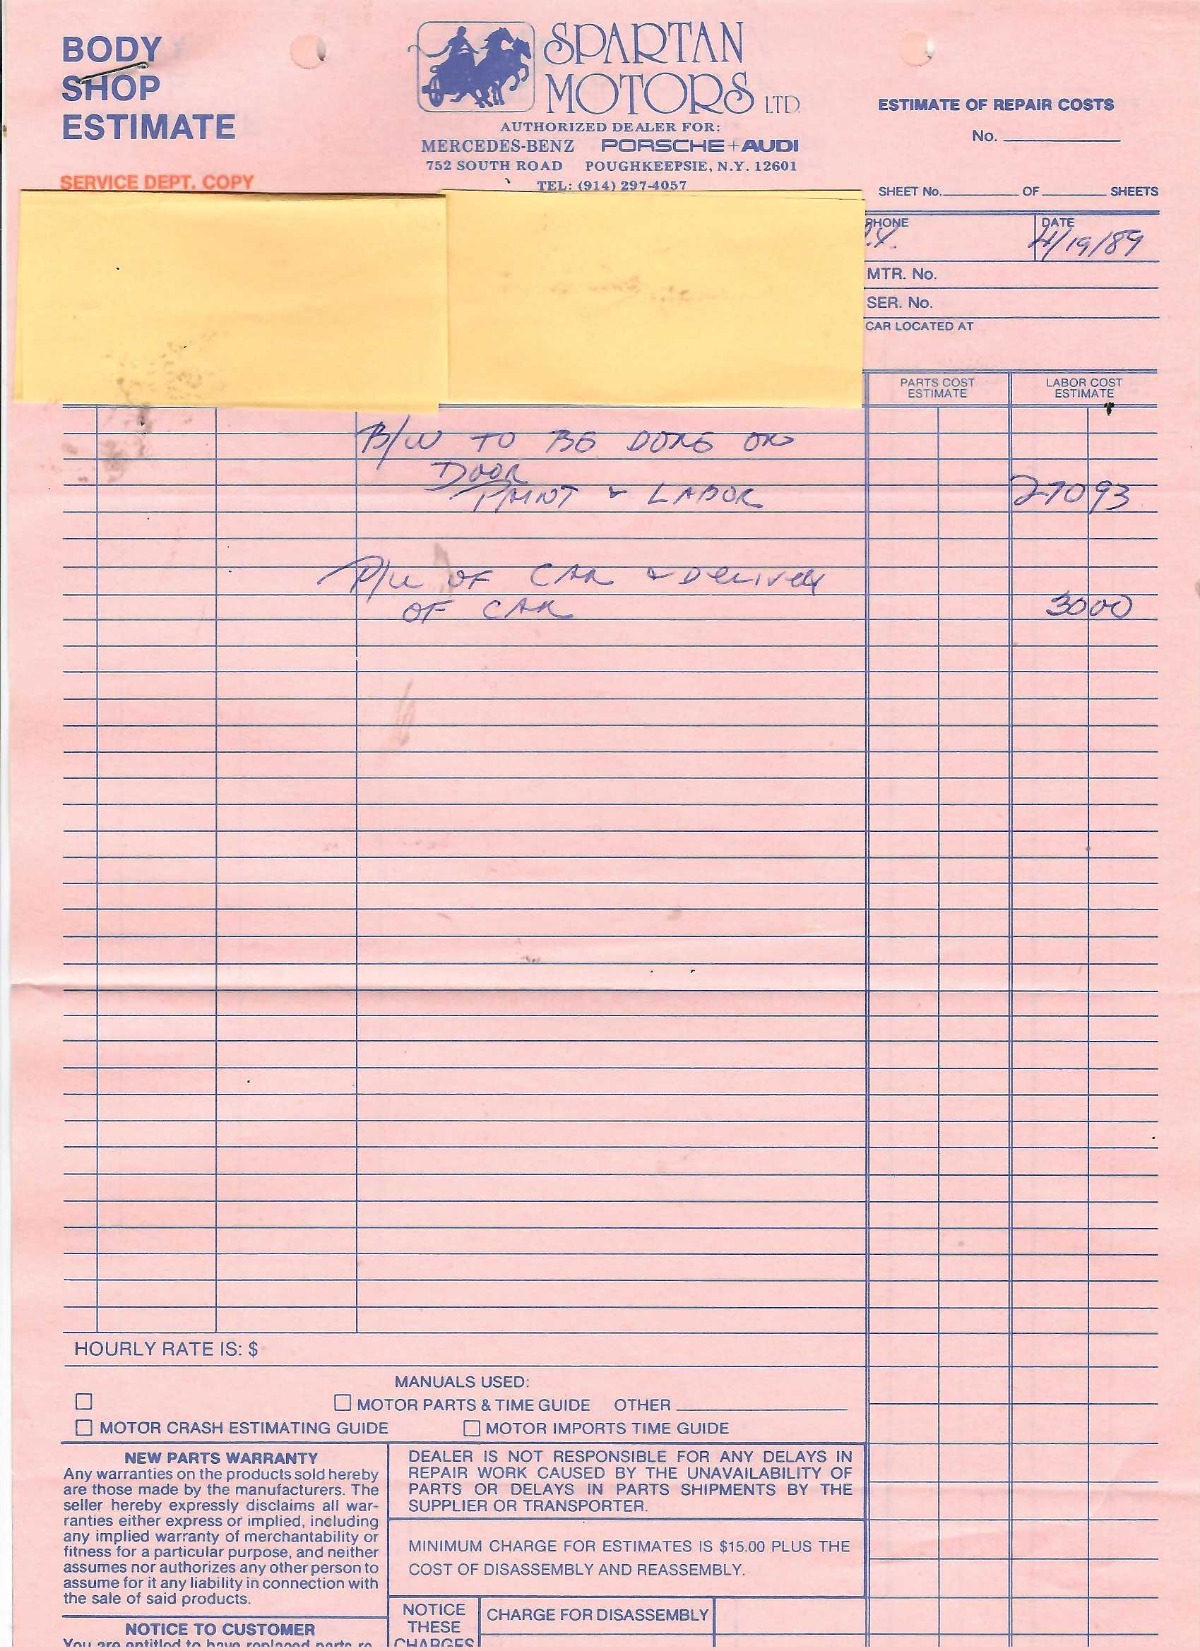 BODY
SHOP
ESTIMATE
SERVICE DEPT. COPY
SPARTAN
MOTORS LTD.
AUTHORIZED DEALER FOR:
MERCEDES-BENZ PORSCHE+AUDI
752 SOUTH ROAD POUGHKEEPSIE, N.Y. 12601
TEL: (914) 297-4057
ESTIMATE OF REPAIR COSTS
No.
SHEET No. OF SHEETS
PHONE DATE
4/19/89
MTR. No.
SER. No.
CAR LOCATED AT
PARTS COST ESTIMATE LABOR COST ESTIMATE
B/W TO BE DONE ON
DOOR
PAINT & LABOR 270 93
P/U OF CAR & Delivery
OF CAR 30 00
HOURLY RATE IS: $
MANUALS USED:
MOTOR PARTS & TIME GUIDE OTHER
MOTOR CRASH ESTIMATING GUIDE MOTOR IMPORTS TIME GUIDE
NEW PARTS WARRANTY
Any warranties on the products sold hereby
are those made by the manufacturers. The
seller hereby expressly disclaims all war-
ranties either express or implied, including
any implied warranty of merchantability or
fitness for a particular purpose, and neither
assumes nor authorizes any other person to
assume for it any liability in connection with
the sale of said products.
NOTICE TO CUSTOMER
You are entitled to have replaced parts re
DEALER IS NOT RESPONSIBLE FOR ANY DELAYS IN
REPAIR WORK CAUSED BY THE UNAVAILABILITY OF
PARTS OR DELAYS IN PARTS SHIPMENTS BY THE
SUPPLIER OR TRANSPORTER.
MINIMUM CHARGE FOR ESTIMATES IS $15.00 PLUS THE
COST OF DISASSEMBLY AND REASSEMBLY.
NOTICE
THESE
CHARGES
CHARGE FOR DISASSEMBLY